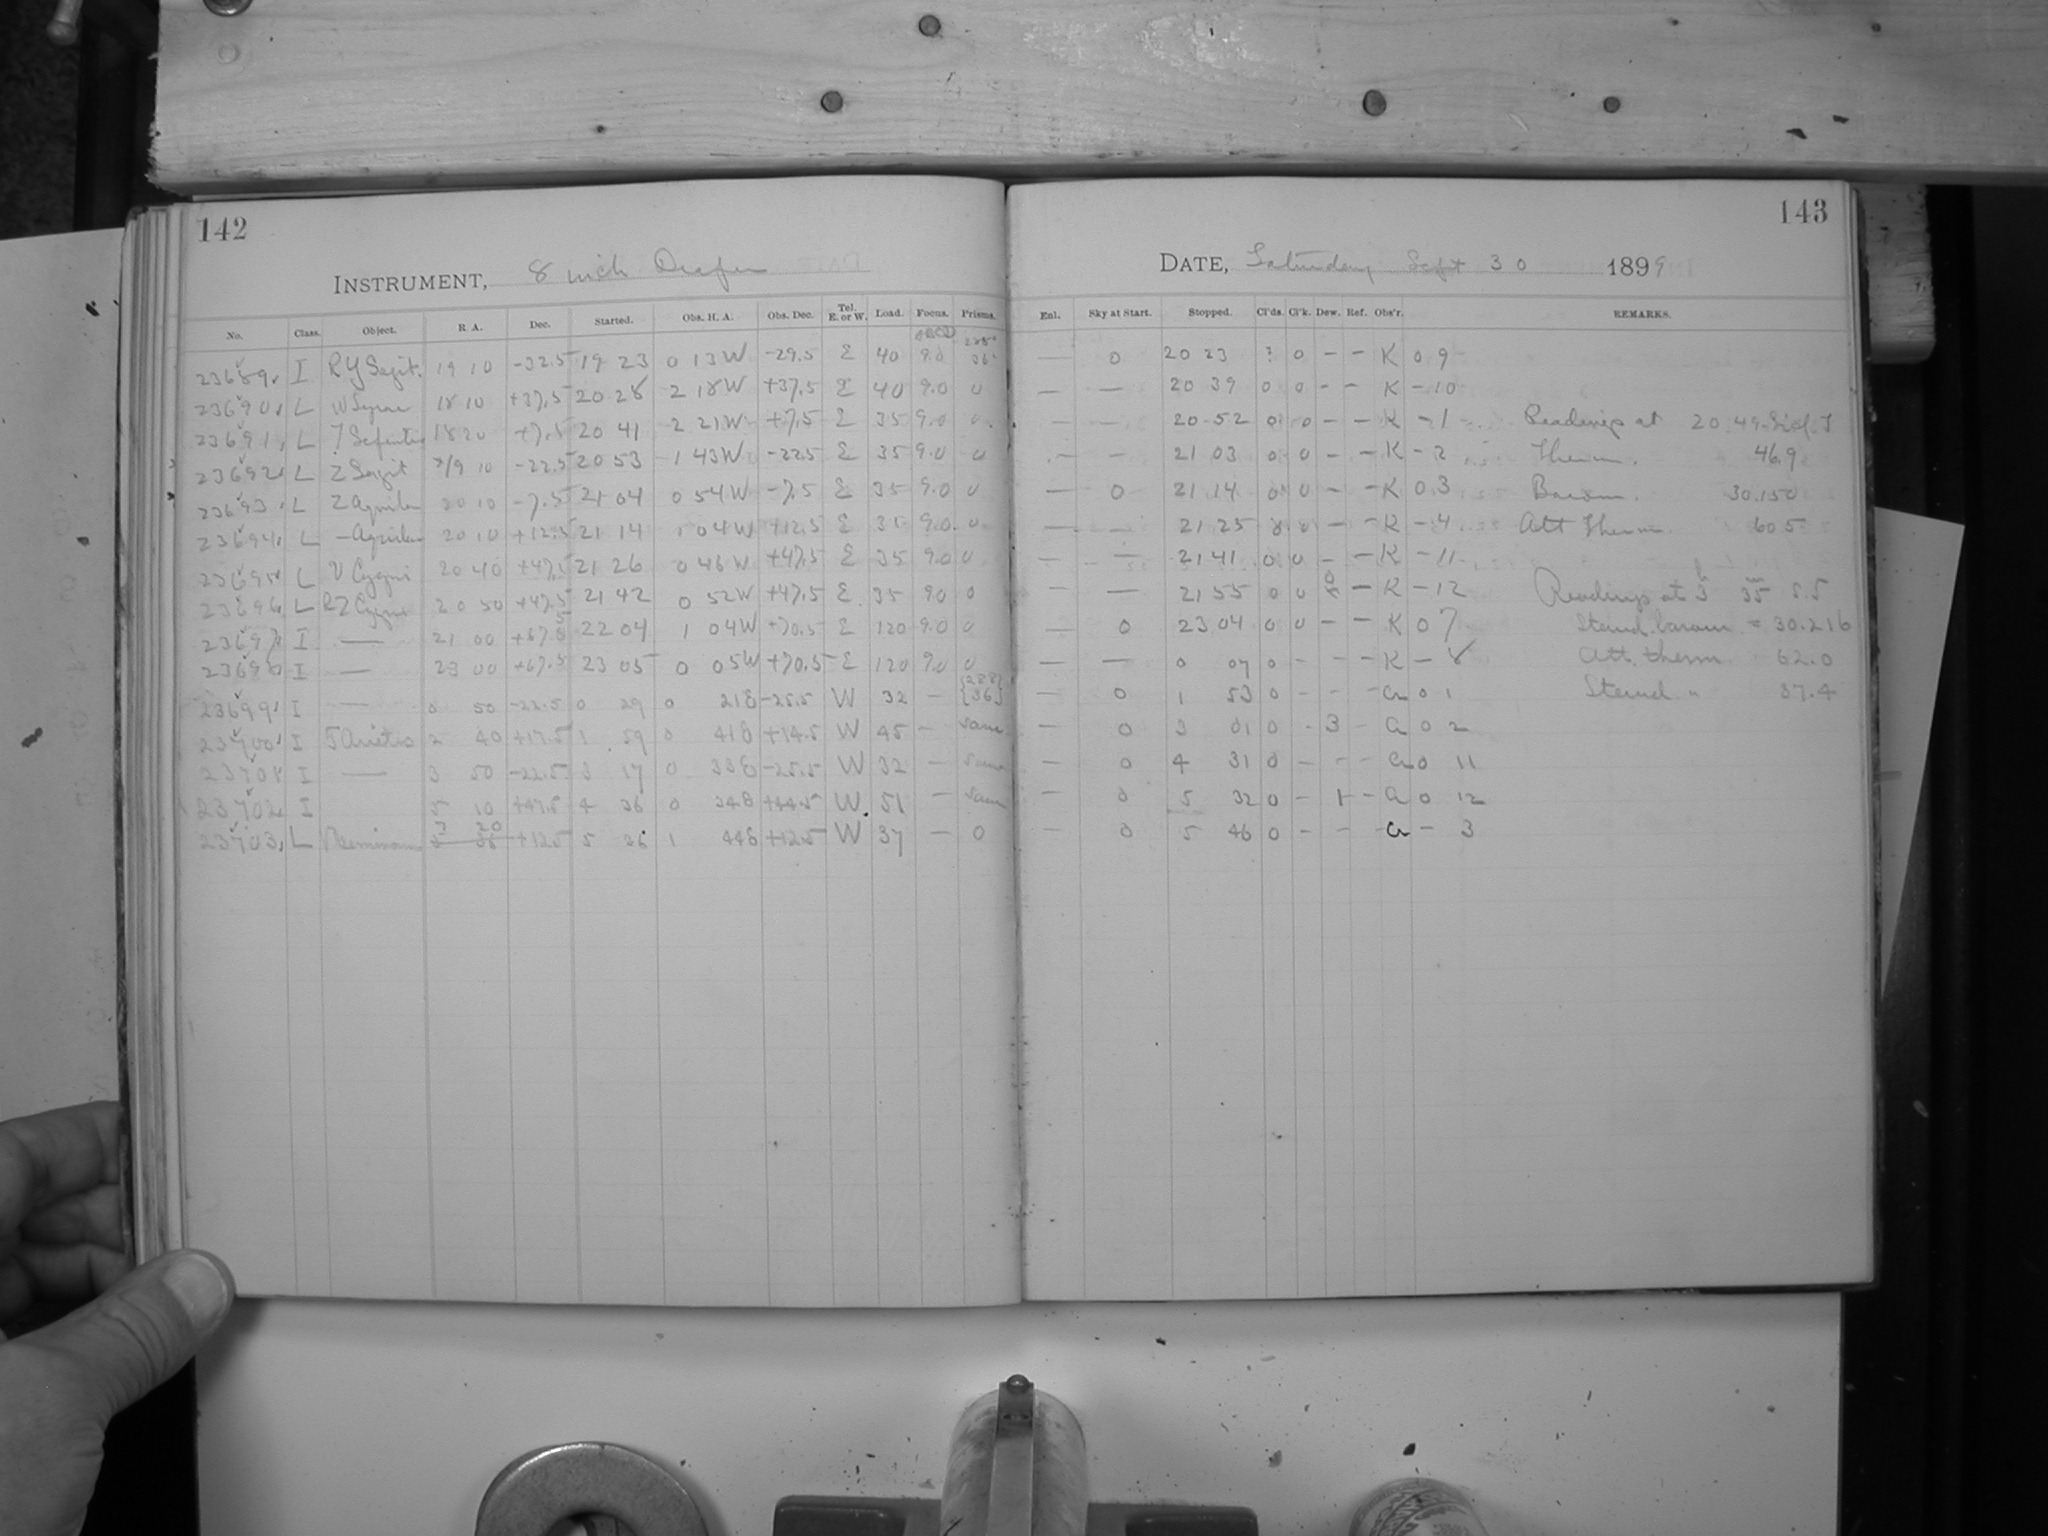 142
143
INSTRUMENT, 8 inch Draper
DATE, Saturday Sept 30 1899
No. Class. Object. R.A. Dec. Started. Obs. H. A. Obs. Dec. Tel. E. or W. Load. Focus. Prisms. Enl. Sky at Start. Stopped. Cl'ds. Cl'k. Dew. Ref. Obs'r. REMARKS.
23689 I RY Sagit. 19 10 -32.5 19 23 0 13W -29.5 E 40 9.0 — 0 20 23 ? 0 - - K 0 9
23690 L W Lyrae 18 10 +37.5 20 28 2 18W +37.5 E 40 9.0 0 — — 20 39 0 0 - - K - 10
23691 L T Serpentis 18 20 +7.5 20 41 2 21W +7.5 E 35 9.0 0 — — 20 52 0 0 - - K - 1 Readings at 20 49 Sid. T
23692 L Z Sagit 19 10 -22.5 20 53 1 43W -22.5 E 35 9.0 0 — — 21 03 0 0 - - K - 2 Therm. 46.9
23693 L Z Aquilae 20 10 -7.5 21 04 0 54W -7.5 E 35 9.0 0 — 0 21 14 0 0 - - K 0 3 Barom. 30.150
23694 L - Aquilae 20 10 +12.5 21 14 1 04W +12.5 E 35 9.0 0 — — 21 25 0 0 - - K - 4 Att Therm. 60 5
23695 L V Cygni 20 40 +47.5 21 26 0 46W +47.5 E 35 9.0 0 — — 21 41 0 0 - - K - 11
23696 L RZ Cygni 20 50 +47.5 21 42 0 52W +47.5 E 35 9.0 0 — — 21 55 0 0 - K - 12 Readings at 3h 35m S.S
23697 I — 21 00 +67.5 22 04 1 04W +70.5 E 120 9.0 0 — 0 23 04 0 0 - - K 0 7 Stand. barom = 30.216
23698 I — 23 00 +67.5 23 05 0 05W +70.5 E 120 9.0 0 — — 0 07 0 - - - K - 8 Att. therm 62.0
23699 I — 0 50 -22.5 0 29 0 21E -25.5 W 32 - {288} {36} — 0 1 53 0 - - - a 0 1 Stand " 37.4
23700 I T Arietis 2 40 +17.5 1 59 0 41E +14.5 W 45 - same — 0 3 01 0 - 3 - a 0 2
23701 I — 3 50 -22.5 3 17 0 33E -25.5 W 32 - same — 0 4 31 0 - - - a 0 11
23702 I 5 10 +47.5 4 36 0 34E +44.5 W 51 - same — 0 5 32 0 - 1 - a 0 12
23703 L Geminorum 7 20 +12.5 5 36 1 44E +12.5 W 37 - 0 — 0 5 46 0 - - - a - 3